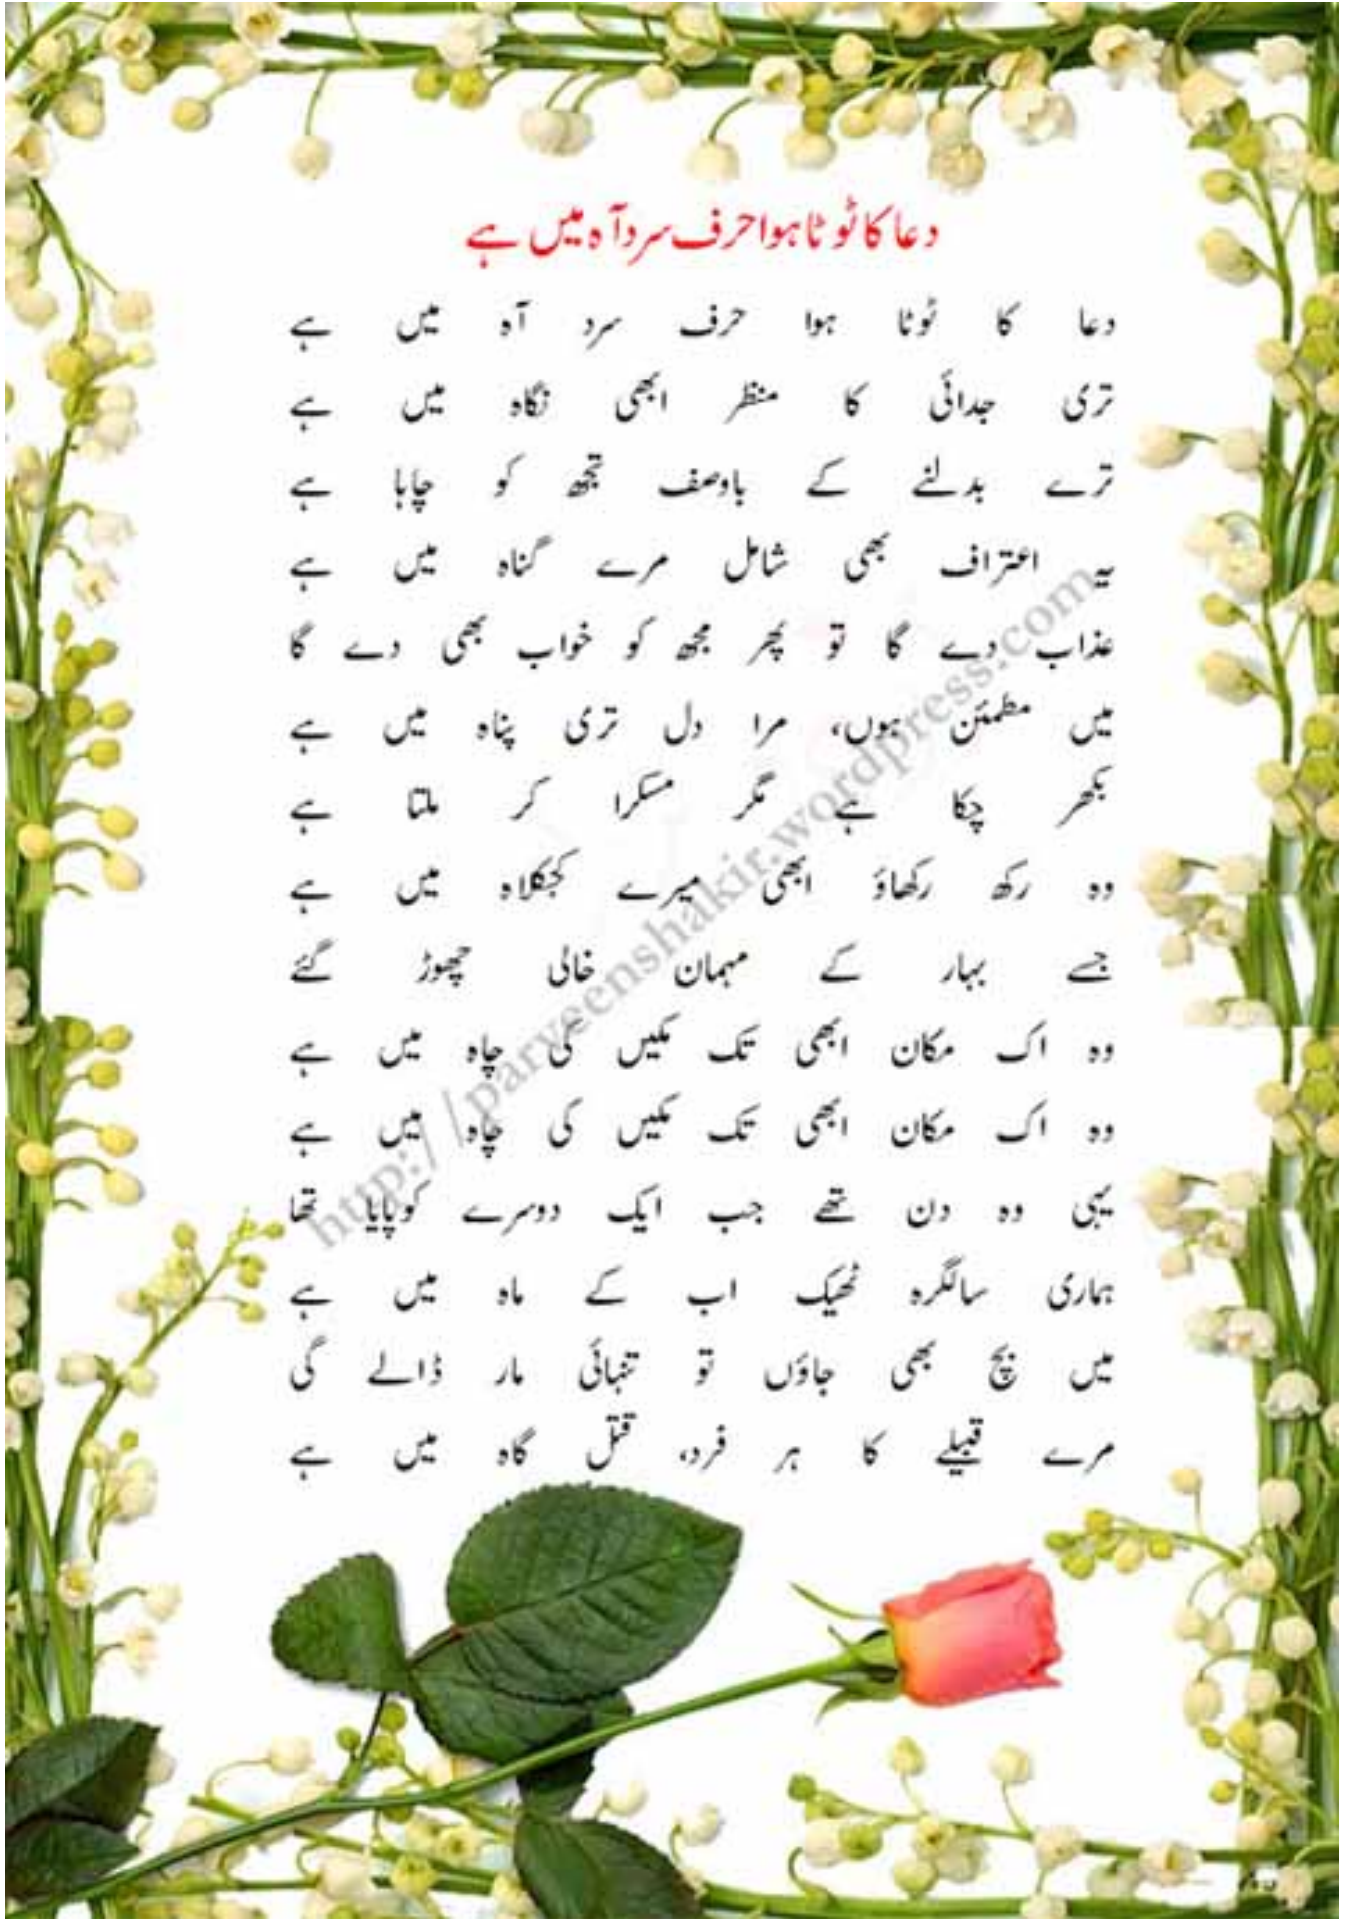 دعا کا ٹوٹا ہوا حرف سرد آہ میں ہے
دعا کا ٹوٹا ہوا حرف سرد آہ میں ہے
تری جدائی کا منظر ابھی نگاہ میں ہے
ترے بدلنے کے باوصف تجھ کو چاہا ہے
یہ اعتراف بھی شامل مرے گناہ میں ہے
عذاب دے گا تو پھر مجھ کو خواب بھی دے گا
میں مطمئن ہوں، مرا دل تری پناہ میں ہے
بکھر چکا ہے مگر مسکرا کر ملتا ہے
وہ رکھ رکھاؤ ابھی میرے کجکلاہ میں ہے
جسے بہار کے مہمان خالی چھوڑ گئے
وہ اک مکان ابھی تک مکیں کی چاہ میں ہے
وہ اک مکان ابھی تک مکیں کی چاہ میں ہے
یہی وہ دن تھے جب ایک دوسرے کوپایا تھا
ہماری سالگرہ ٹھیک اب کے ماہ میں ہے
میں بچ بھی جاؤں تو تنہائی مار ڈالے گی
مرے قبیلے کا ہر فرد، قتل گاہ میں ہے
http://parveenshakir.wordpress.com